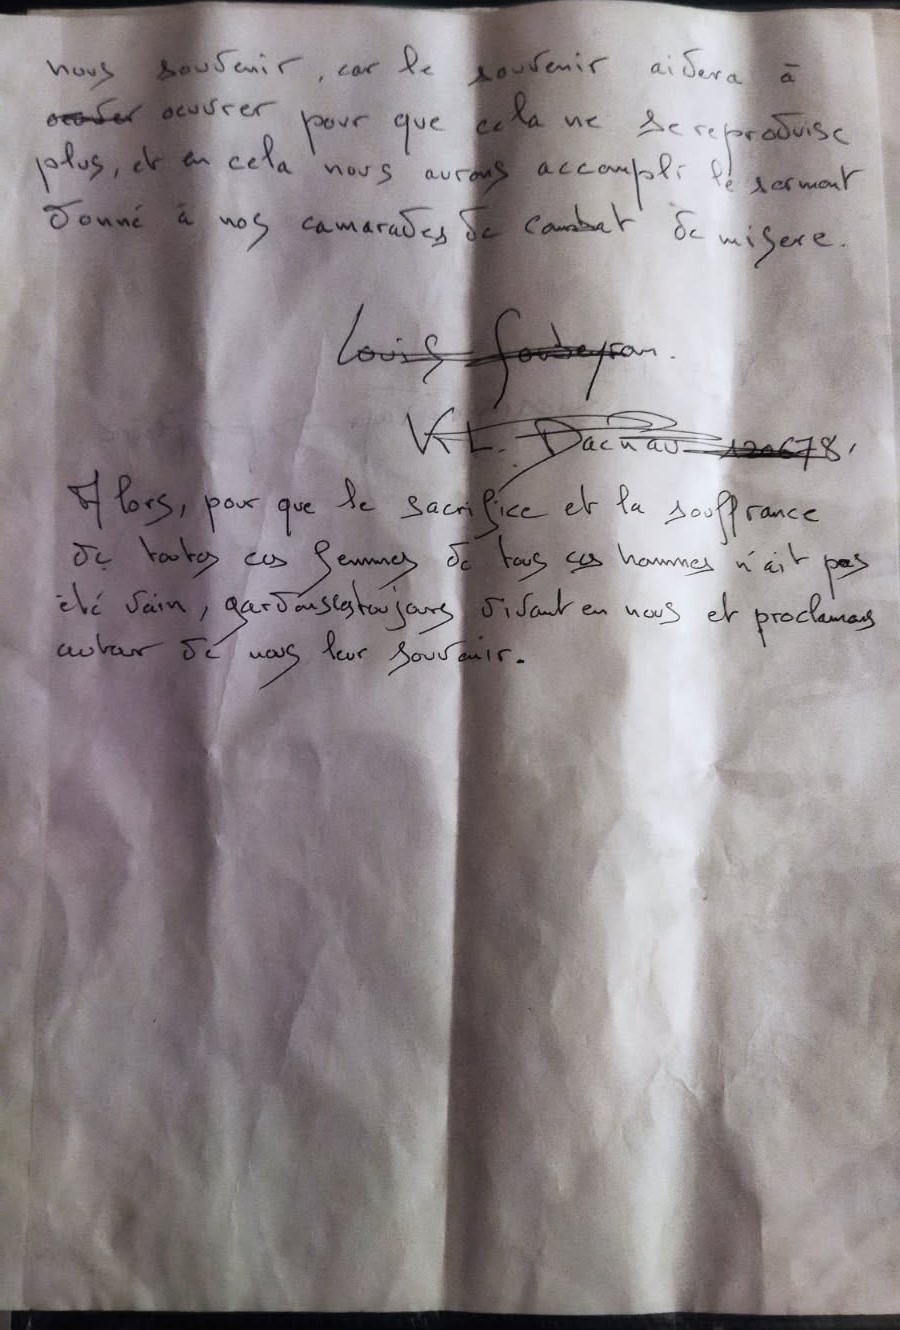 nous souvenir, car le souvenir aidera à
oeuvrer pour que cela ne se reproduise
plus, et en cela nous aurons accompli le serment
donné à nos camarades de combat de misere.
Louis
KL. Dachau
Alors, pour que le sacrifice et la souffrance
de toutes ces femmes de tous ces hommes n'ait pas
été vain, gardonslestoujours vivant en nous et proclamons
autour de nous leur souvenir.